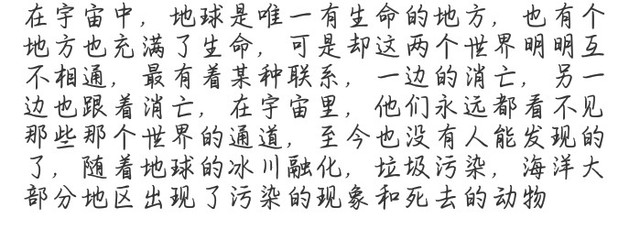 在宇宙中，地球是唯一有生命的地方，也有个
地方也充满了生命，可是却这两个世界明明互
不相通，最有着某种联系，一边的消亡，另一
边也跟着消亡，在宇宙里，他们永远都看不见
那些那个世界的通道，至今也没有人能发现的
了，随着地球的冰川融化，垃圾污染，海洋大
部分地区出现了污染的现象和死去的动物